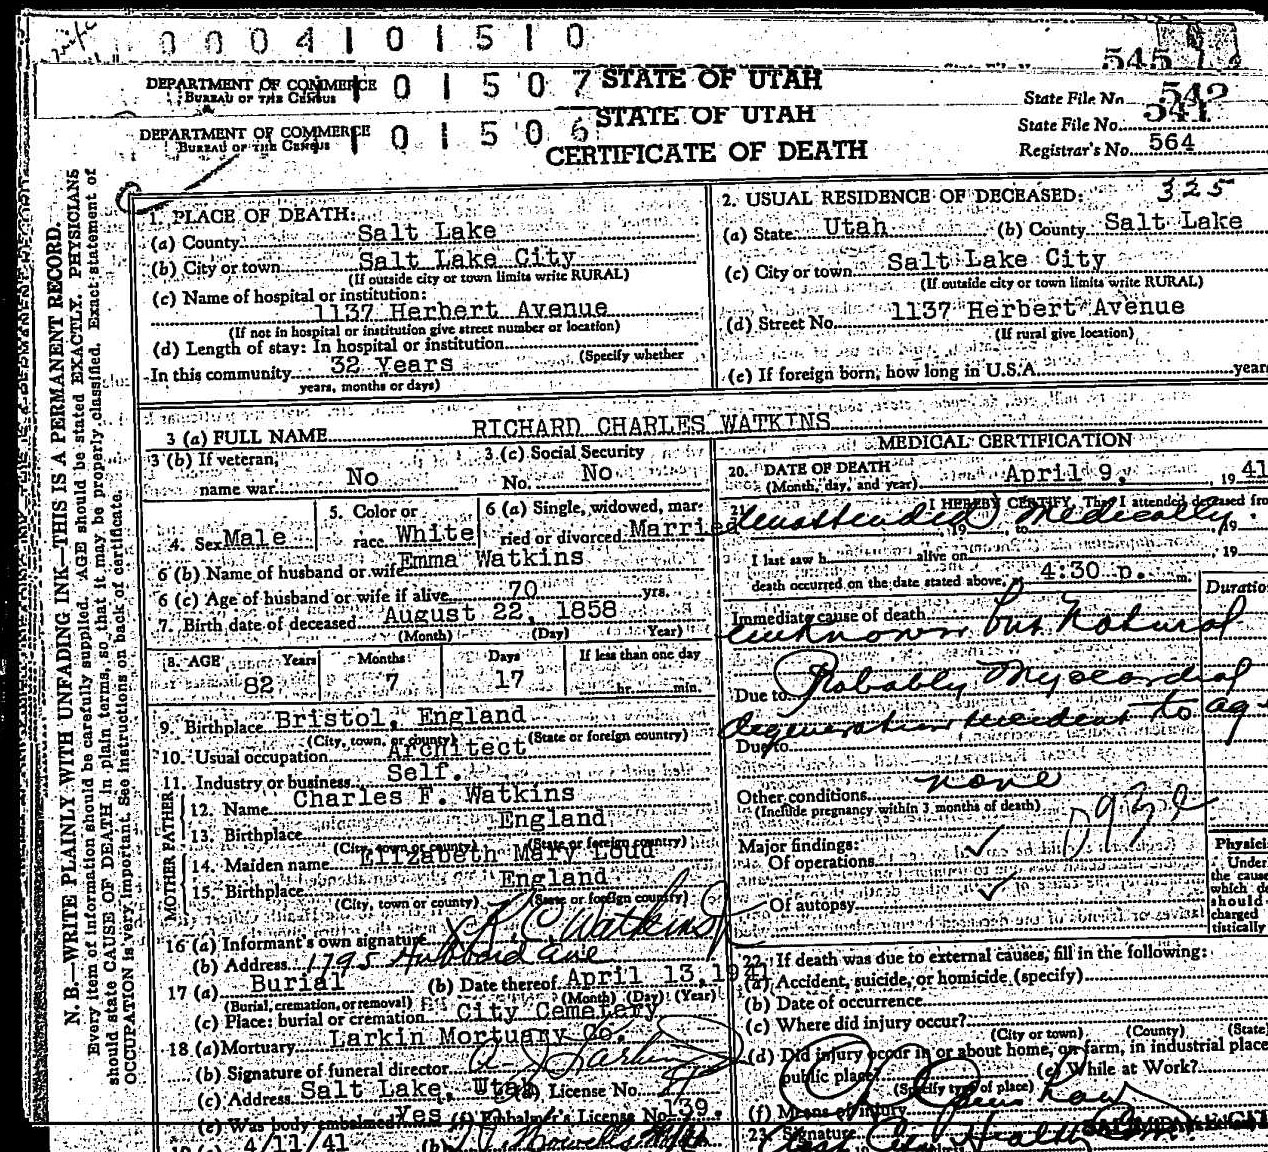 0 0 0 4 1 0 1 5 1 0
545
DEPARTMENT OF COMMERCE
BUREAU OF THE CENSUS
1 0 1 5 0 7
STATE OF UTAH
State File No. 542
DEPARTMENT OF COMMERCE
BUREAU OF THE CENSUS
1 0 1 5 0 6
STATE OF UTAH
CERTIFICATE OF DEATH
State File No. 541
Registrar's No. 564
N. B.—WRITE PLAINLY WITH UNFADING INK—THIS IS A PERMANENT RECORD.
Every item of information should be carefully supplied. AGE should be stated EXACTLY. PHYSICIANS
should state CAUSE OF DEATH in plain terms, so that it may be properly classified. Exact statement of
OCCUPATION is very important. See instructions on back of certificate.
1. PLACE OF DEATH:
(a) County Salt Lake
(b) City or town Salt Lake City
(If outside city or town limits write RURAL)
(c) Name of hospital or institution:
1137 Herbert Avenue
(If not in hospital or institution give street number or location)
(d) Length of stay: In hospital or institution
(Specify whether
In this community 32 Years
years, months or days)
2. USUAL RESIDENCE OF DECEASED: 325
(a) State Utah (b) County Salt Lake
(c) City or town Salt Lake City
(If outside city or town limits write RURAL)
(d) Street No. 1137 Herbert Avenue
(If rural give location)
(e) If foreign born, how long in U.S.A. years
3 (a) FULL NAME RICHARD CHARLES WATKINS
3 (b) If veteran,
name war No
3 (c) Social Security
No. No
4. Sex Male
5. Color or
race White
6 (a) Single, widowed, mar-
ried or divorced Married
6 (b) Name of husband or wife Emma Watkins
6 (c) Age of husband or wife if alive 70 yrs.
7. Birth date of deceased August 22, 1858
(Month) (Day) (Year)
8. AGE Years Months Days If less than one day
82 7 17 hr. min.
9. Birthplace Bristol, England
(City, town, or county) (State or foreign country)
10. Usual occupation Architect
11. Industry or business Self.
FATHER
12. Name Charles F. Watkins
13. Birthplace England
(City, town or county) (State or foreign country)
MOTHER
14. Maiden name Elizabeth Mary Loud
15. Birthplace England
(City, town or county) (State or foreign country)
16 (a) Informant's own signature X R C Watkins Jr
(b) Address 1795 Hubbard Ave
17 (a) Burial (b) Date thereof April 13, 1941
(Burial, cremation, or removal) (Month) (Day) (Year)
(c) Place: burial or cremation City Cemetery
18 (a) Mortuary Larkin Mortuary Co.
(b) Signature of funeral director
(c) Address Salt Lake, Utah (d) License No.
(e) Was body embalmed Yes (f) Embalmer's License No. 39.
4/11/41 (b)
MEDICAL CERTIFICATION
20. DATE OF DEATH
(Month, day, and year) April 9, 1941
21. I HEREBY CERTIFY, That I attended deceased from
unattended Medically
, 19 to , 19
I last saw h alive on , 19
death occurred on the date stated above, at 4:30 p. m.
Duration
Immediate cause of death
unknown but Natural
Due to Probably Myocardial
degeneration incident to ag
Due to
Other conditions none
(Include pregnancy within 3 months of death)
Major findings:
Of operations ✓
Of autopsy ✓
Physici
Under
the cause
which d
should
charged
tistically
22. If death was due to external causes, fill in the following:
(a) Accident, suicide, or homicide (specify)
(b) Date of occurrence
(c) Where did injury occur?
(City or town) (County) (State)
(d) Did injury occur in or about home, on farm, in industrial place,
public place? (e) While at Work?
(Specify type of place)
(f) Means of injury
23. Signature